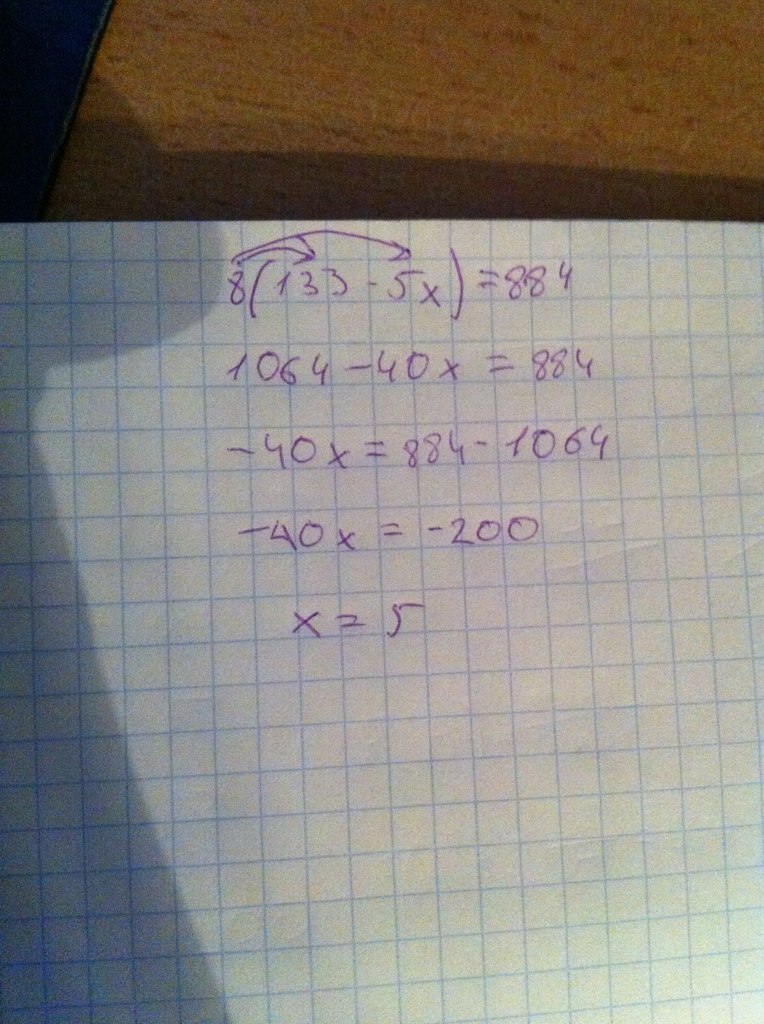 8(133 - 5x) = 884
1064 - 40x = 884
-40x = 884 - 1064
-40x = -200
x = 5